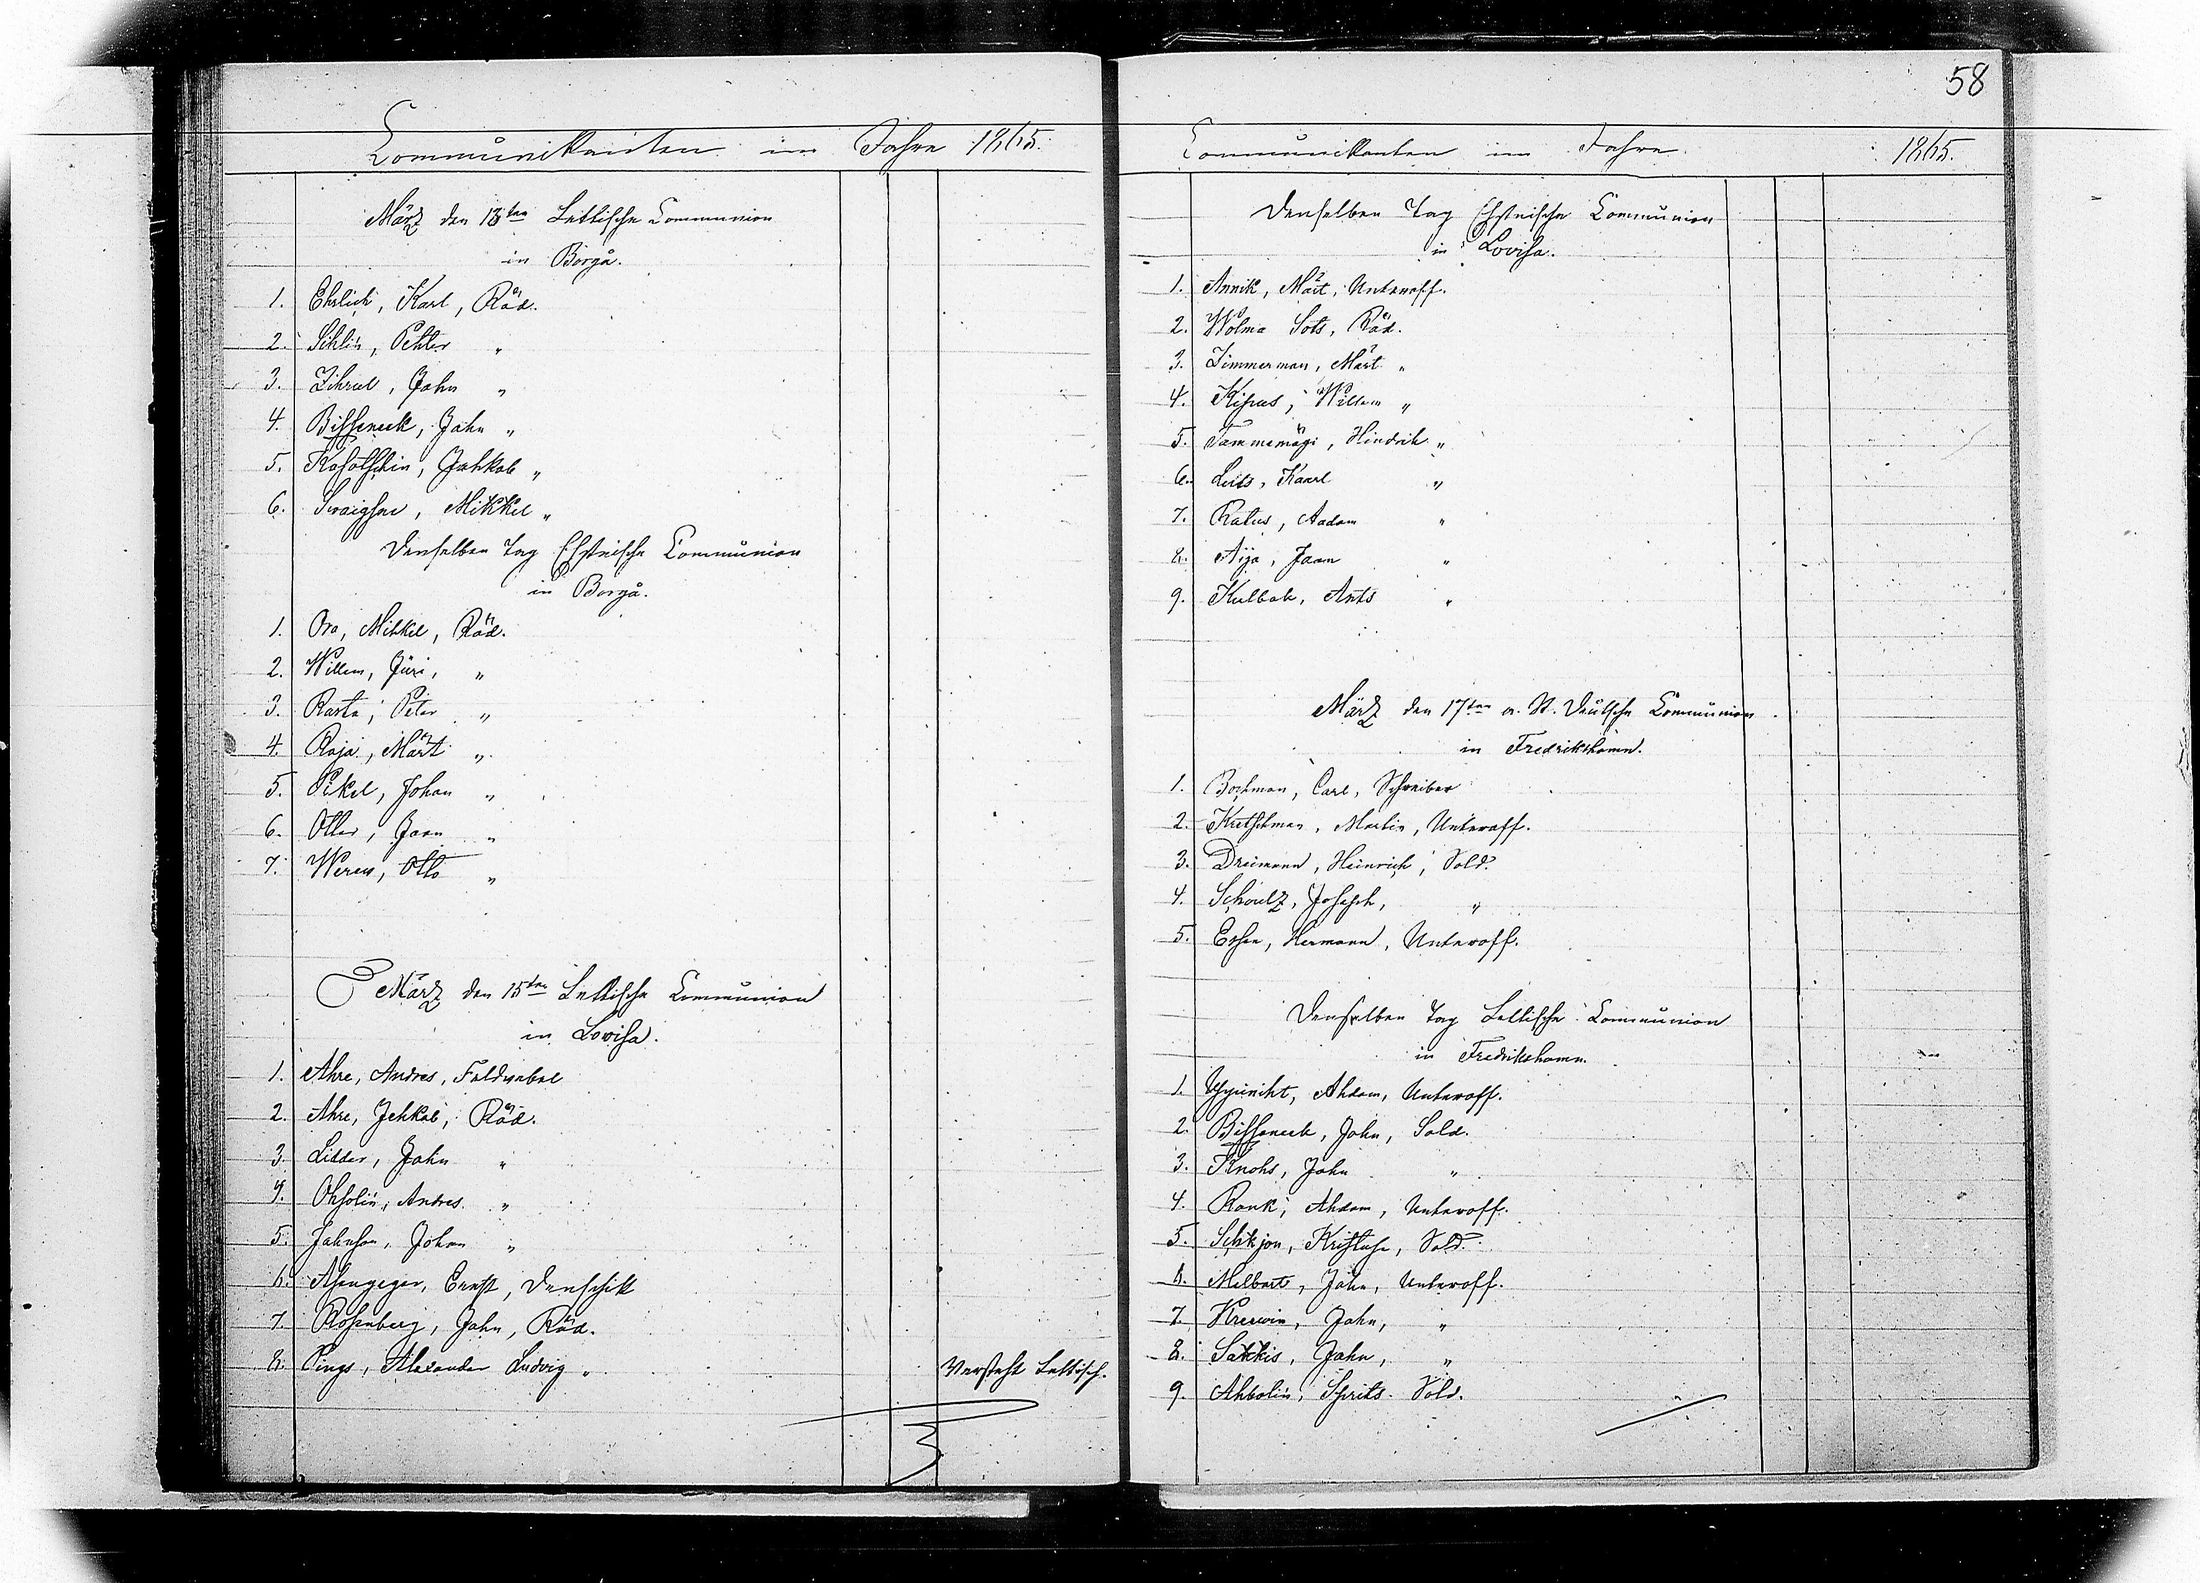 Communikanten im Jahre 1865.
März den 13ten Lettische Communion
in Borgå.
1. Ehrlich, Karl, Räd.
2. Sihlin, Pehter "
3. Zihrul, Jahn "
4. Bisseneek, Jahn "
5. Kasotschkin, Jahkob "
6. Swaigsne, Mikkel "
Denselben Tag Ehstnische Communion
in Borgå.
1. Ora, Mihkel, Räd.
2. Willem, Jüri, "
3. Rasta, Peter "
4. Raja, Märt "
5. Pikel, Johan "
6. Otter, Jaan "
7. Werew, Otto "
März den 15ten Lettische Communion
in Lovisa.
1. Ahre, Andres, Feldwebel
2. Ahre, Jehkab, Räd.
3. Lidder, Jahn "
4. Ohsolin, Andres "
5. Jahnson, Johan "
6. Ernst, Denschik
7. Rosenberg, Jahn, Räd.
8. Pings, Alexander Ludwig " Versteht Lettisch.
58
Communikanten im Jahre 1865.
Denselben Tag Ehstnische Communion
in Lovisa.
1. Annik, Märt, Unteroff.
2. Wolma Sots, Räd.
3. Zimmerman, Märt "
4. Willem "
5. Tammemägi, Hindrik "
6. Leits, Kaarl "
7. Ratus, Aadam "
8. Aija, Jaan "
9. Kulbak, Ants "
März den 17ten a. St. Deutsche Communion
in Fredrikshamn.
1. Bochman, Carl, Schreiber
2. Kretschman, Martin, Unteroff.
3. Dreimann, Heinrich, Sold.
4. Schoultz, Joseph, "
5. Essen, Hermann, Unteroff.
Denselben Tag Lettische Communion
in Fredrikshamn.
1. Ahdam, Unteroff.
2. Bisseneek, Jahn, Sold.
3. Knohs, Jahn "
4. Rank, Ahdam, Unteroff.
5. Schkjon, Kristaps, Sold.
6. Milbert, Jahn, Unteroff.
7. Kreewin, Jahn, "
8. Sakkis, Jahn, "
9. Ahbolin, Sprits. Sold.